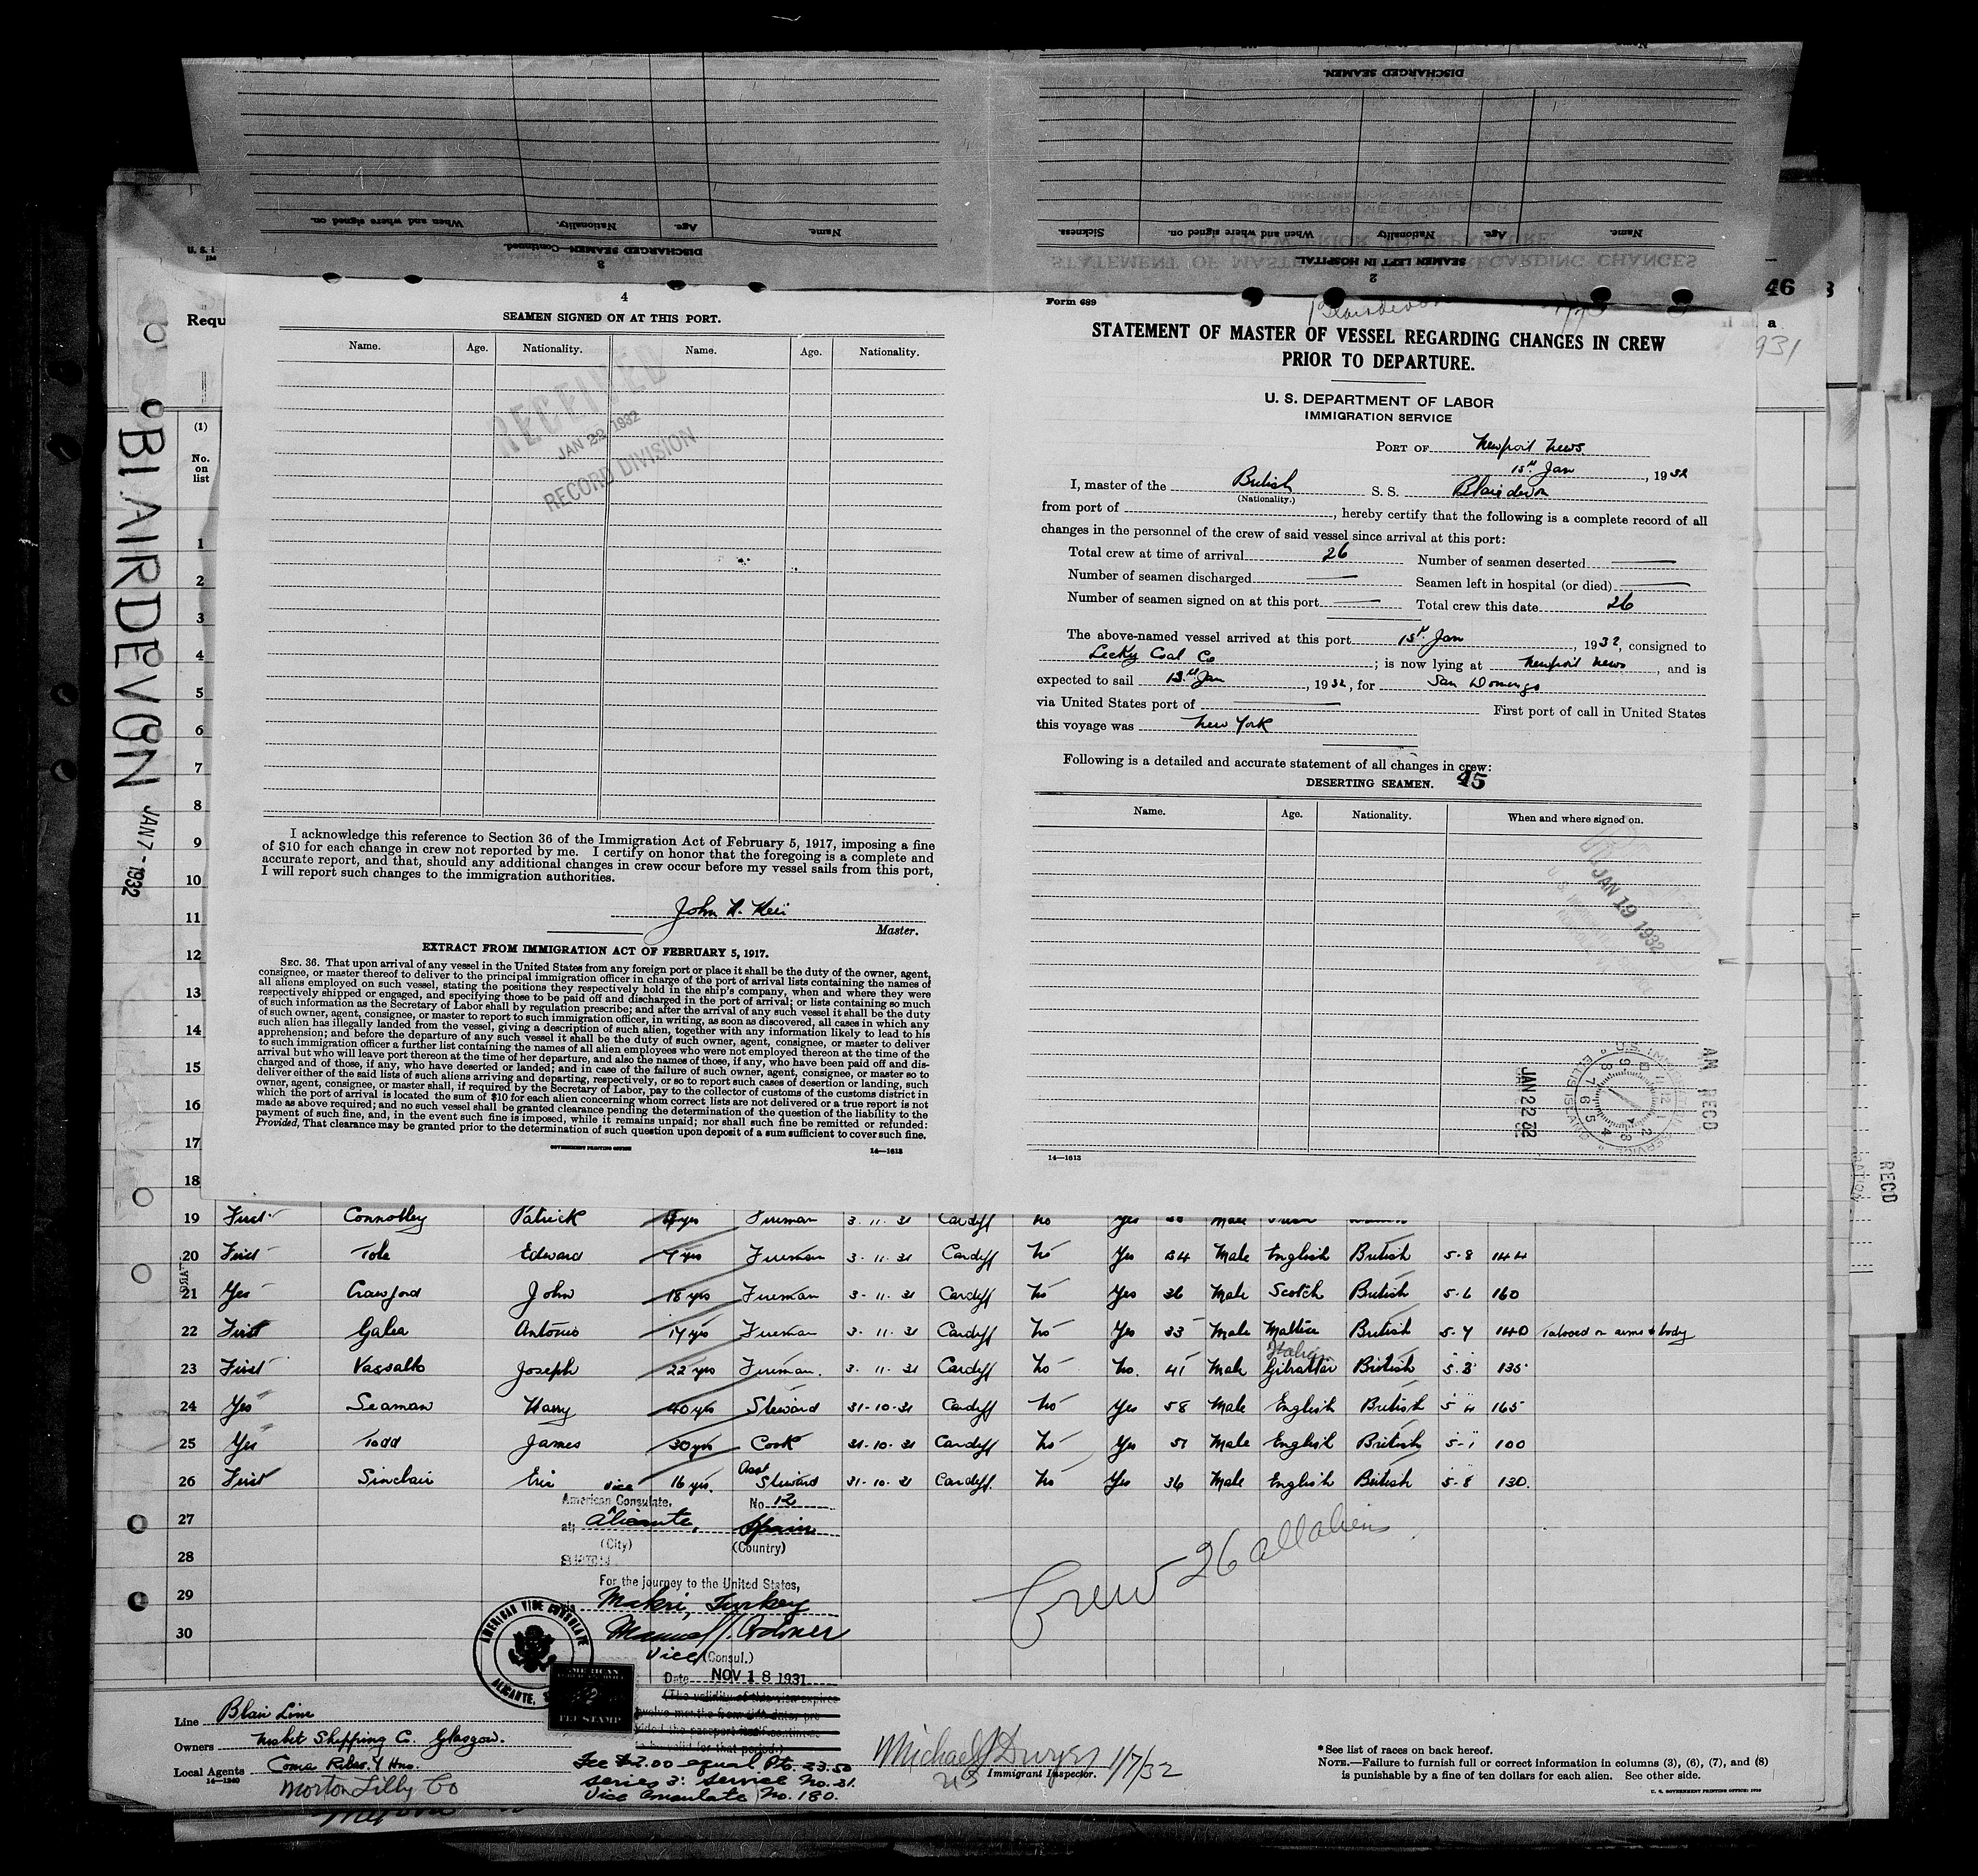 DISCHARGED SEAMEN.
Name.
Age.
Nationality.
When and where signed on.
DISCHARGED SEAMEN—Continued.
3
Name.
Age.
Nationality
When and where signed on.
Sickness.
SEAMEN LEFT IN HOSPITAL.
2
46
a
931
Requ
BLAIRDEVON
JAN 7 - 1932
(1)
No.
on
list
1
2
3
4
5
6
7
8
9
10
11
12
13
14
15
16
17
18
4
SEAMEN SIGNED ON AT THIS PORT.
Name. Age. Nationality. Name. Age. Nationality.
RECEIVED
JAN 22 1932
RECORD DIVISION
I acknowledge this reference to Section 36 of the Immigration Act of February 5, 1917, imposing a fine
of $10 for each change in crew not reported by me. I certify on honor that the foregoing is a complete and
accurate report, and that, should any additional changes in crew occur before my vessel sails from this port,
I will report such changes to the immigration authorities.
John
Master.
EXTRACT FROM IMMIGRATION ACT OF FEBRUARY 5, 1917.
SEC. 36. That upon arrival of any vessel in the United States from any foreign port or place it shall be the duty of the owner, agent,
consignee, or master thereof to deliver to the principal immigration officer in charge of the port of arrival lists containing the names of
all aliens employed on such vessel, stating the positions they respectively hold in the ship's company, when and where they were
respectively shipped or engaged, and specifying those to be paid off and discharged in the port of arrival; or lists containing so much
of such information as the Secretary of Labor shall by regulation prescribe; and after the arrival of any such vessel it shall be the duty
of such owner, agent, consignee, or master to report to such immigration officer, in writing, as soon as discovered, all cases in which any
such alien has illegally landed from the vessel, giving a description of such alien, together with any information likely to lead to his
apprehension; and before the departure of any such vessel it shall be the duty of such owner, agent, consignee, or master to deliver
to such immigration officer a further list containing the names of all alien employees who were not employed thereon at the time of the
arrival but who will leave port thereon at the time of her departure, and also the names of those, if any, who have been paid off and dis-
charged and of those, if any, who have deserted or landed; and in case of the failure of such owner, agent, consignee, or master so to
deliver either of the said lists of such aliens arriving and departing, respectively, or so to report such cases of desertion or landing, such
owner, agent, consignee, or master shall, if required by the Secretary of Labor, pay to the collector of customs of the customs district in
which the port of arrival is located the sum of $10 for each alien concerning whom correct lists are not delivered or a true report is not
made as above required; and no such vessel shall be granted clearance pending the determination of the question of the liability to the
payment of such fine, and, in the event such fine is imposed, while it remains unpaid; nor shall such fine be remitted or refunded:
Provided, That clearance may be granted prior to the determination of such question upon deposit of a sum sufficient to cover such fine.
GOVERNMENT PRINTING OFFICE
14—1613
Form 689
Blairdevon
STATEMENT OF MASTER OF VESSEL REGARDING CHANGES IN CREW
PRIOR TO DEPARTURE.
U. S. DEPARTMENT OF LABOR
IMMIGRATION SERVICE
PORT OF Newport News
Jan, 1932
I, master of the British S. S. Blairdevon
(Nationality.)
from port of , hereby certify that the following is a complete record of all
changes in the personnel of the crew of said vessel since arrival at this port:
Total crew at time of arrival 26 Number of seamen deserted
Number of seamen discharged Seamen left in hospital (or died)
Number of seamen signed on at this port Total crew this date 26
The above-named vessel arrived at this port Jan, 1932, consigned to
Lecky Coal Co ; is now lying at Newport News, and is
expected to sail Jan, 1932, for San Domingo
via United States port of First port of call in United States
this voyage was New York
Following is a detailed and accurate statement of all changes in crew:
DESERTING SEAMEN. 45
Name. Age. Nationality. When and where signed on.
JAN 19 1932
JAN 22 32
AM RECD
U.S. IMMIGRATION SERVICE
ELLIS ISLAND
14—1613
RECD
19 First Connolley Patrick yrs Fireman 3. 11. 31 Cardiff No Yes Male Irish
20 First Tole Edward 7 yrs Fireman 3. 11. 31 Cardiff No Yes 34 Male English British 5-8 144
21 Yes Crawford John 18 yrs Fireman 3. 11. 31 Cardiff No Yes 36 Male Scotch British 5-6 160
22 First Galea Antonio 17 yrs Fireman 3. 11. 31 Cardiff No Yes 33 Male Maltese British 5-7 140 Tatooed on arms & body
Italian
23 First Vassallo Joseph 22 yrs Fireman. 3. 11. 31 Cardiff No No. 41 Male Gibraltar British 5-8 135
24 Yes Seaman Harry 40 yrs Steward 31-10-31 Cardiff No Yes 58 Male English British 5 4 165
25 Yes Todd James 30 yrs Cook 31-10-31 Cardiff No Yes 51 Male English British 5-1 100
26 First Sinclair Eric 16 yrs. Asst Steward 31-10-31 Cardiff. No Yes 36 Male English British 5-8 130.
27
28
29
30
vice
American Consulate, No. 12
at: Alicante, Spain
(City) (Country)
For the journey to the United States,
Makri, Turkey
Vice (Consul.)
Date NOV 18 1931
(The validity of this visa expires
twelve months from this date, pro-
vided the passport itself continues
to be valid for that period.)
AMERICAN VICE CONSULATE
ALICANTE, SPAIN
AMERICAN
FEE STAMP
Fee $2.00 equal Pts. 23.50
series 3: service No. 31.
Vice Consulate No. 180.
Crew 26 all aliens
Line Blair Line
Owners Nisbet Shipping Co. Glasgow.
Local Agents
14—1240
Morton Lilly Co
Michael J Dwyer 1/7/32
US Immigrant Inspector.
*See list of races on back hereof.
NOTE.—Failure to furnish full or correct information in columns (3), (6), (7), and (8)
is punishable by a fine of ten dollars for each alien. See other side.
U. S. GOVERNMENT PRINTING OFFICE